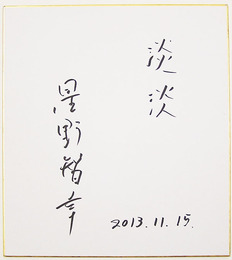 淡淡
星野智幸
2013.11.15.